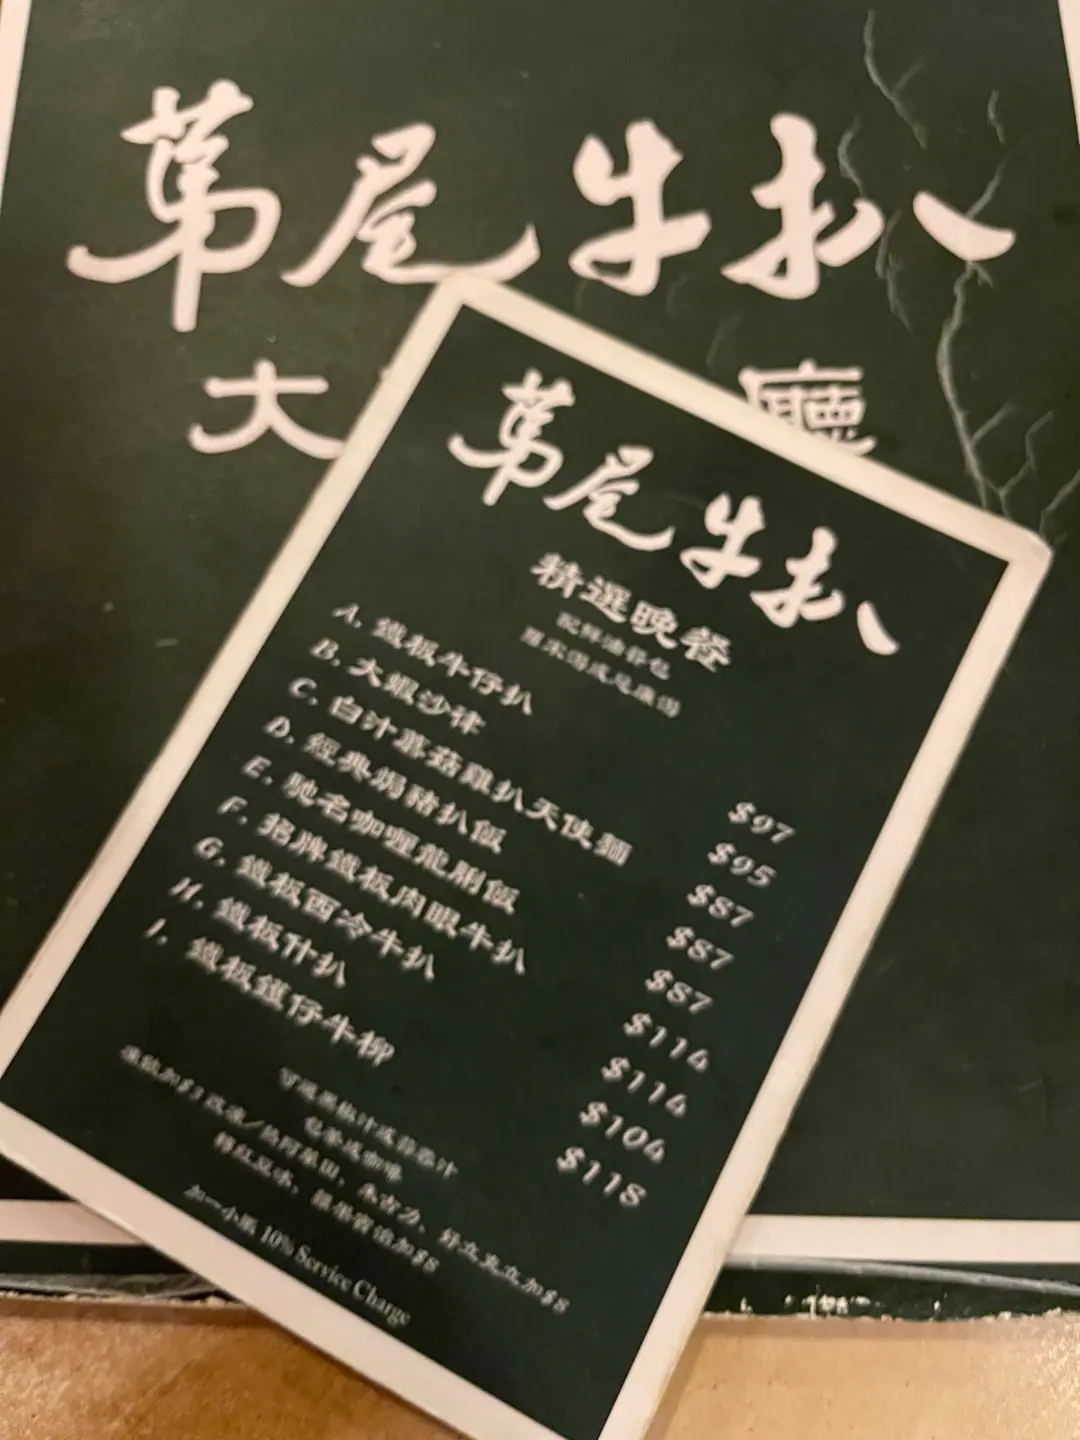 第屋牛扒
大
廳
第屋牛扒
精選晚餐
配鮮油餐包
羅宋湯或忌廉湯
A. 鐵板牛仔扒 $97
B. 大蝦沙律 $95
C. 白汁蘑菇雞扒天使麵 $87
D. 經典焗豬扒飯 $87
E. 馳名咖喱龍脷飯 $87
F. 招牌鐵板肉眼牛扒 $114
G. 鐵板西冷牛扒 $114
H. 鐵板什扒 $104
I. 鐵板鐵仔牛柳 $118
可選黑椒汁或蒜蓉汁
包茶或咖啡
凍飲加$3 改凍/熱阿華田、朱古力、好立克立加$8
特紅豆冰、加$8
加一小賬 10% Service Charge